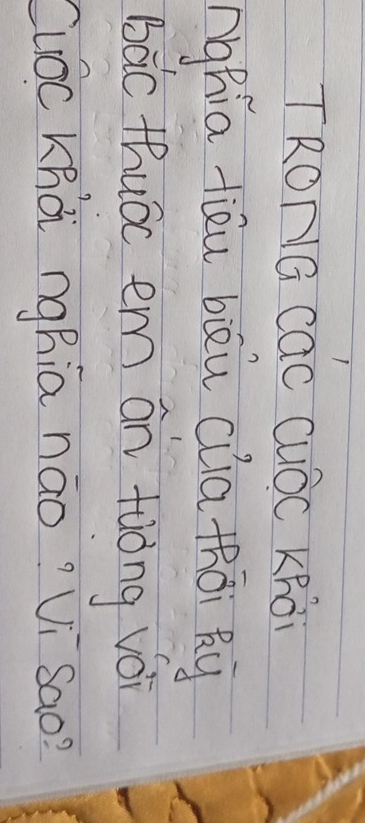 TRONG các cuộc khởi
nghĩa tiêu biểu của thời kỳ
Bắc thuộc em ấn tượng với
Cuộc khởi nghĩa nào? Vì sao?